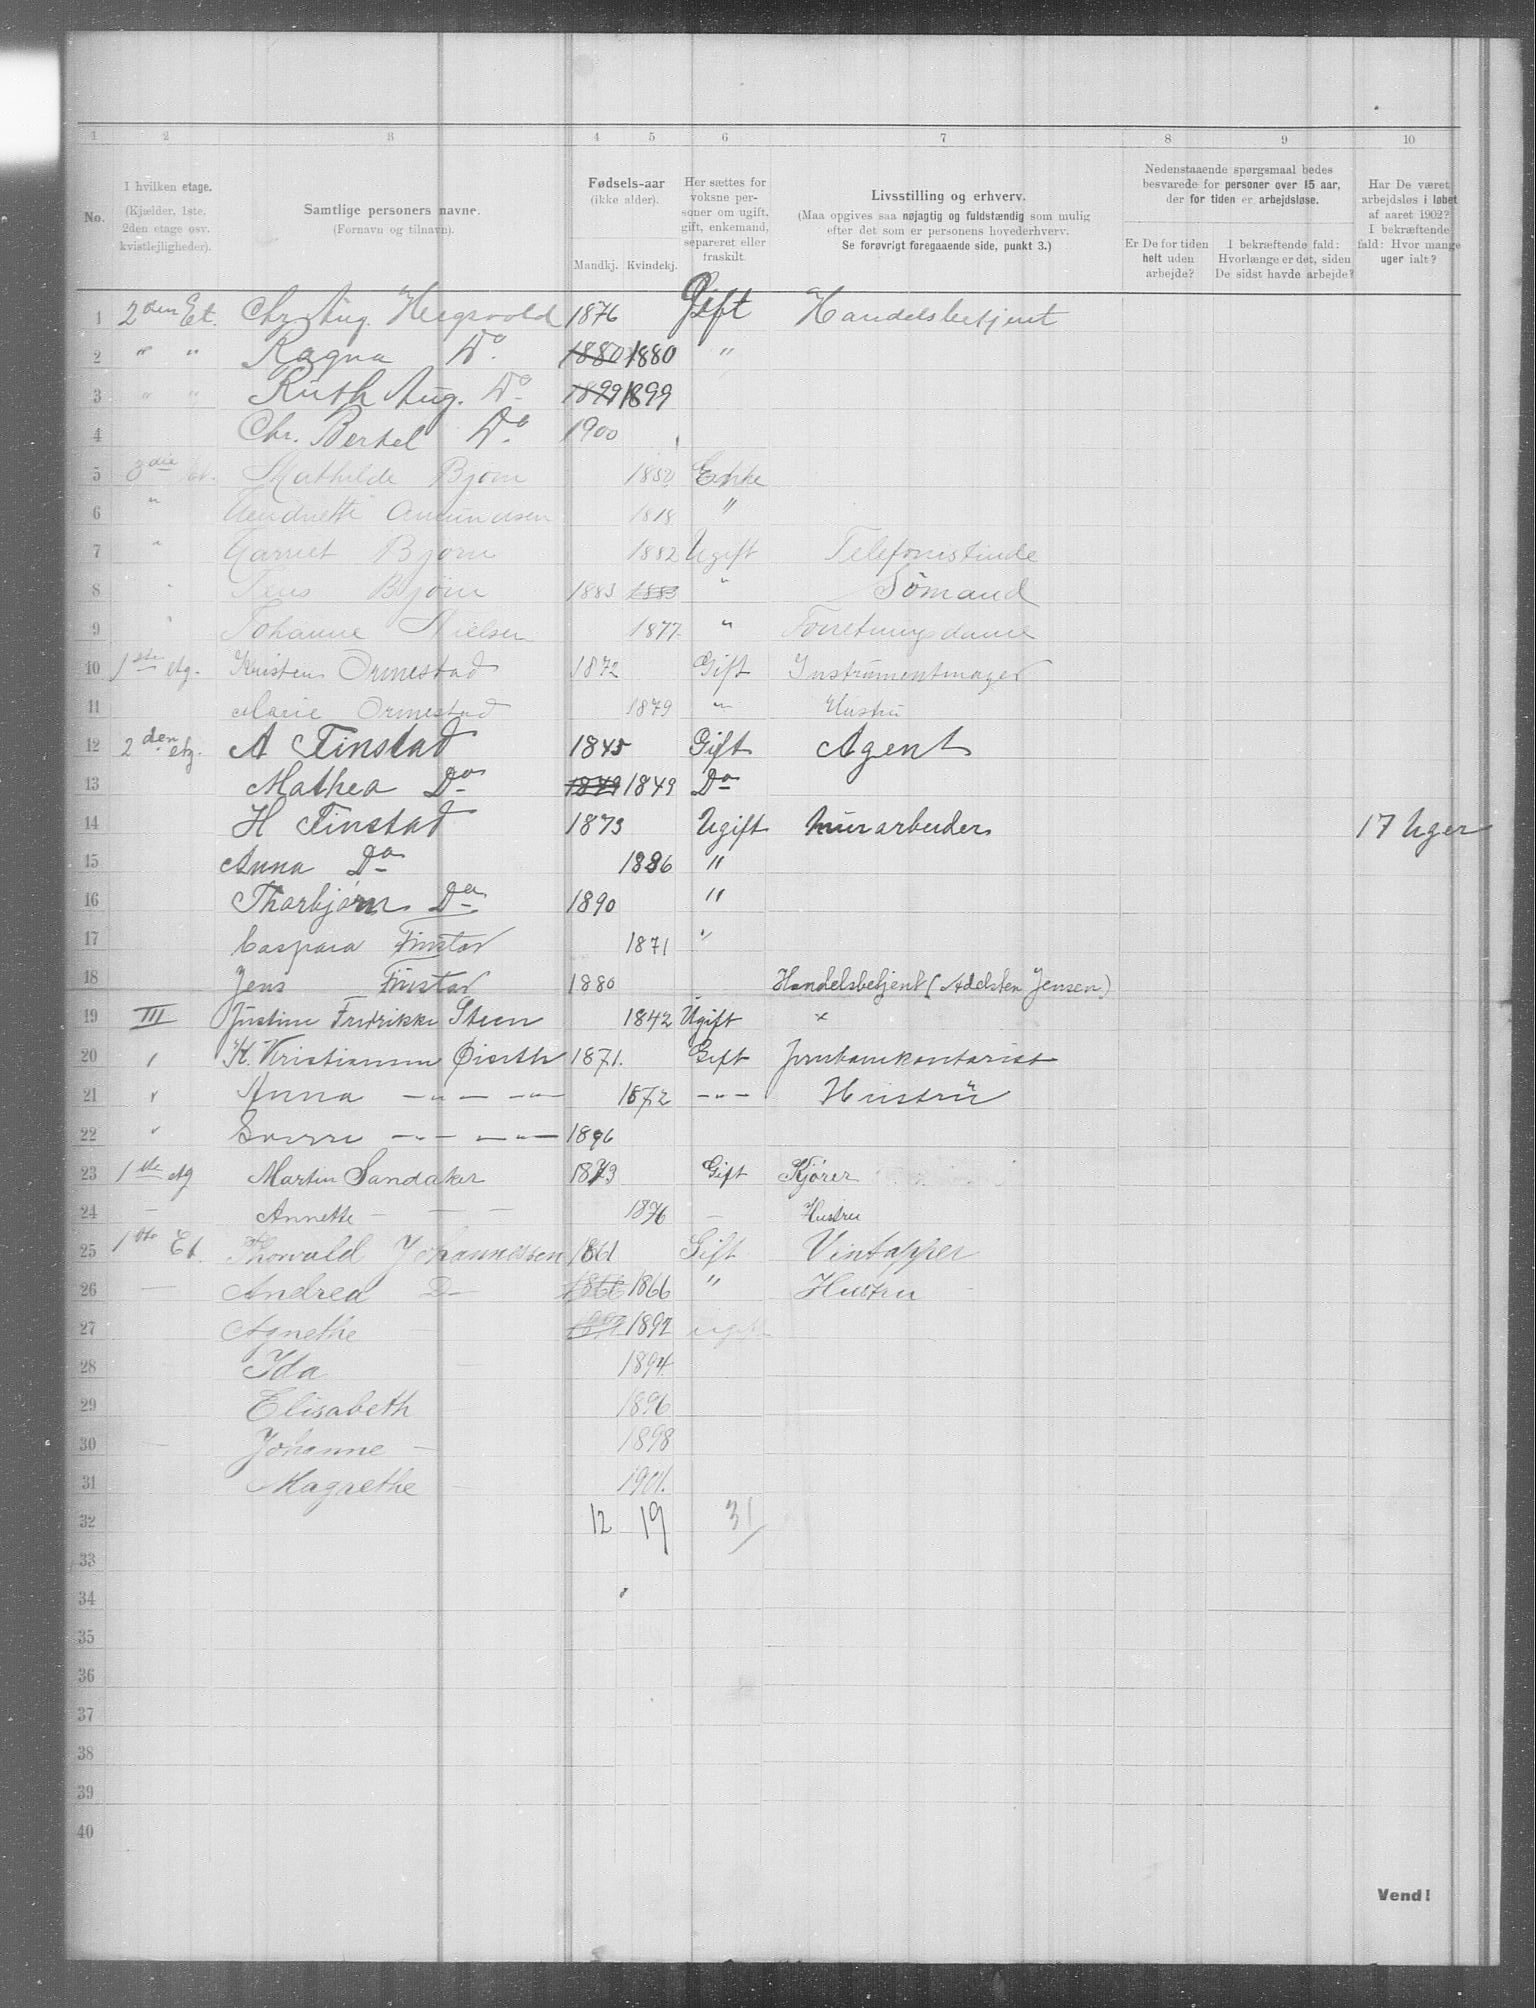 1 2 3 4 5 6 7 8 9 10
No.
I hvilken etage.
(Kjælder, 1ste,
2den etage osv.
kvistlejligheder).
Samtlige personers navne.
(Fornavn og tilnavn).
Fødsels-aar
(ikke alder).
Mandkj. Kvindekj.
Her sættes for
voksne per-
soner om ugift,
gift, enkemand,
separeret eller
fraskilt.
Livsstilling og erhverv.
(Maa opgives saa nøjagtig og fuldstændig som mulig
efter det som er personens hovederhverv.
Se forøvrigt foregaaende side, punkt 3.)
Nedenstaaende spørgsmaal bedes
besvarede for personer over 15 aar,
der for tiden er arbejdsløse.
Er De for tiden
helt uden
arbejde?
I bekræftende fald:
Hvorlænge er det, siden
De sidst havde arbejde?
Har De været
arbejdsløs i løbet
af aaret 1902?
I bekræftende
fald: Hvor mange
uger ialt?
1 2den Et. Chr. Aug. 1876 Gift Handelsbetjent
2 " " Ragna Do. 1880 1880 "
3 " " Ruth Aug. Do. 1899 1899
4 Chr. Bertel Do. 1900
5 3die Et. Mathilde Bjørn 1850 Enke
6 " Amundsen 1818 "
7 " Harriet Bjørn 1882 Ugift Telefonistinde
8 " Jens Bjørn 1883 1883 " Sømand
9 " Johanne Nielsen 1877 " Forretningsdame
10 1ste etg. Kristen Ormestad 1872 Gift Instrumentmager
11 Marie Ormestad 1879 " Hustru
12 2den etg. A Finstad 1845 Gift Agent
13 Mathea Do 1849 1849 Do
14 H Finstad 1873 Ugift Murarbeider 17 Uger
15 Anna Do 1886 "
16 Thorbjørn Do 1890 "
17 Caspara Finstad 1871 "
18 Jens Finstad 1880 Handelsbetjent (Adelsten Jensen)
19 III Justine Fredrikke Steen 1842 Ugift "
20 " K. Kristiansen 1871. Gift Jernbanekontorist
21 " Anna — " — " — 1872 — " — Hustru
22 " Sverre — " — — " — 1896
23 1ste etg Martin Sandaker 1873 Gift Kjører
24 — Annette — — — 1876 — Hustru
25 1ste Et. Thorvald Johannessen 1861 Gift Vintapper
26 — Andrea D— 1866 1866 " Hustru
27 Agnethe — 1892 ugift
28 Ida — 1894
29 Elisabeth — 1896
30 — Johanne — 1898
31 Magrethe — 1901.
32 12 19 31
33
34
35
36
37
38
39
40
Vend!